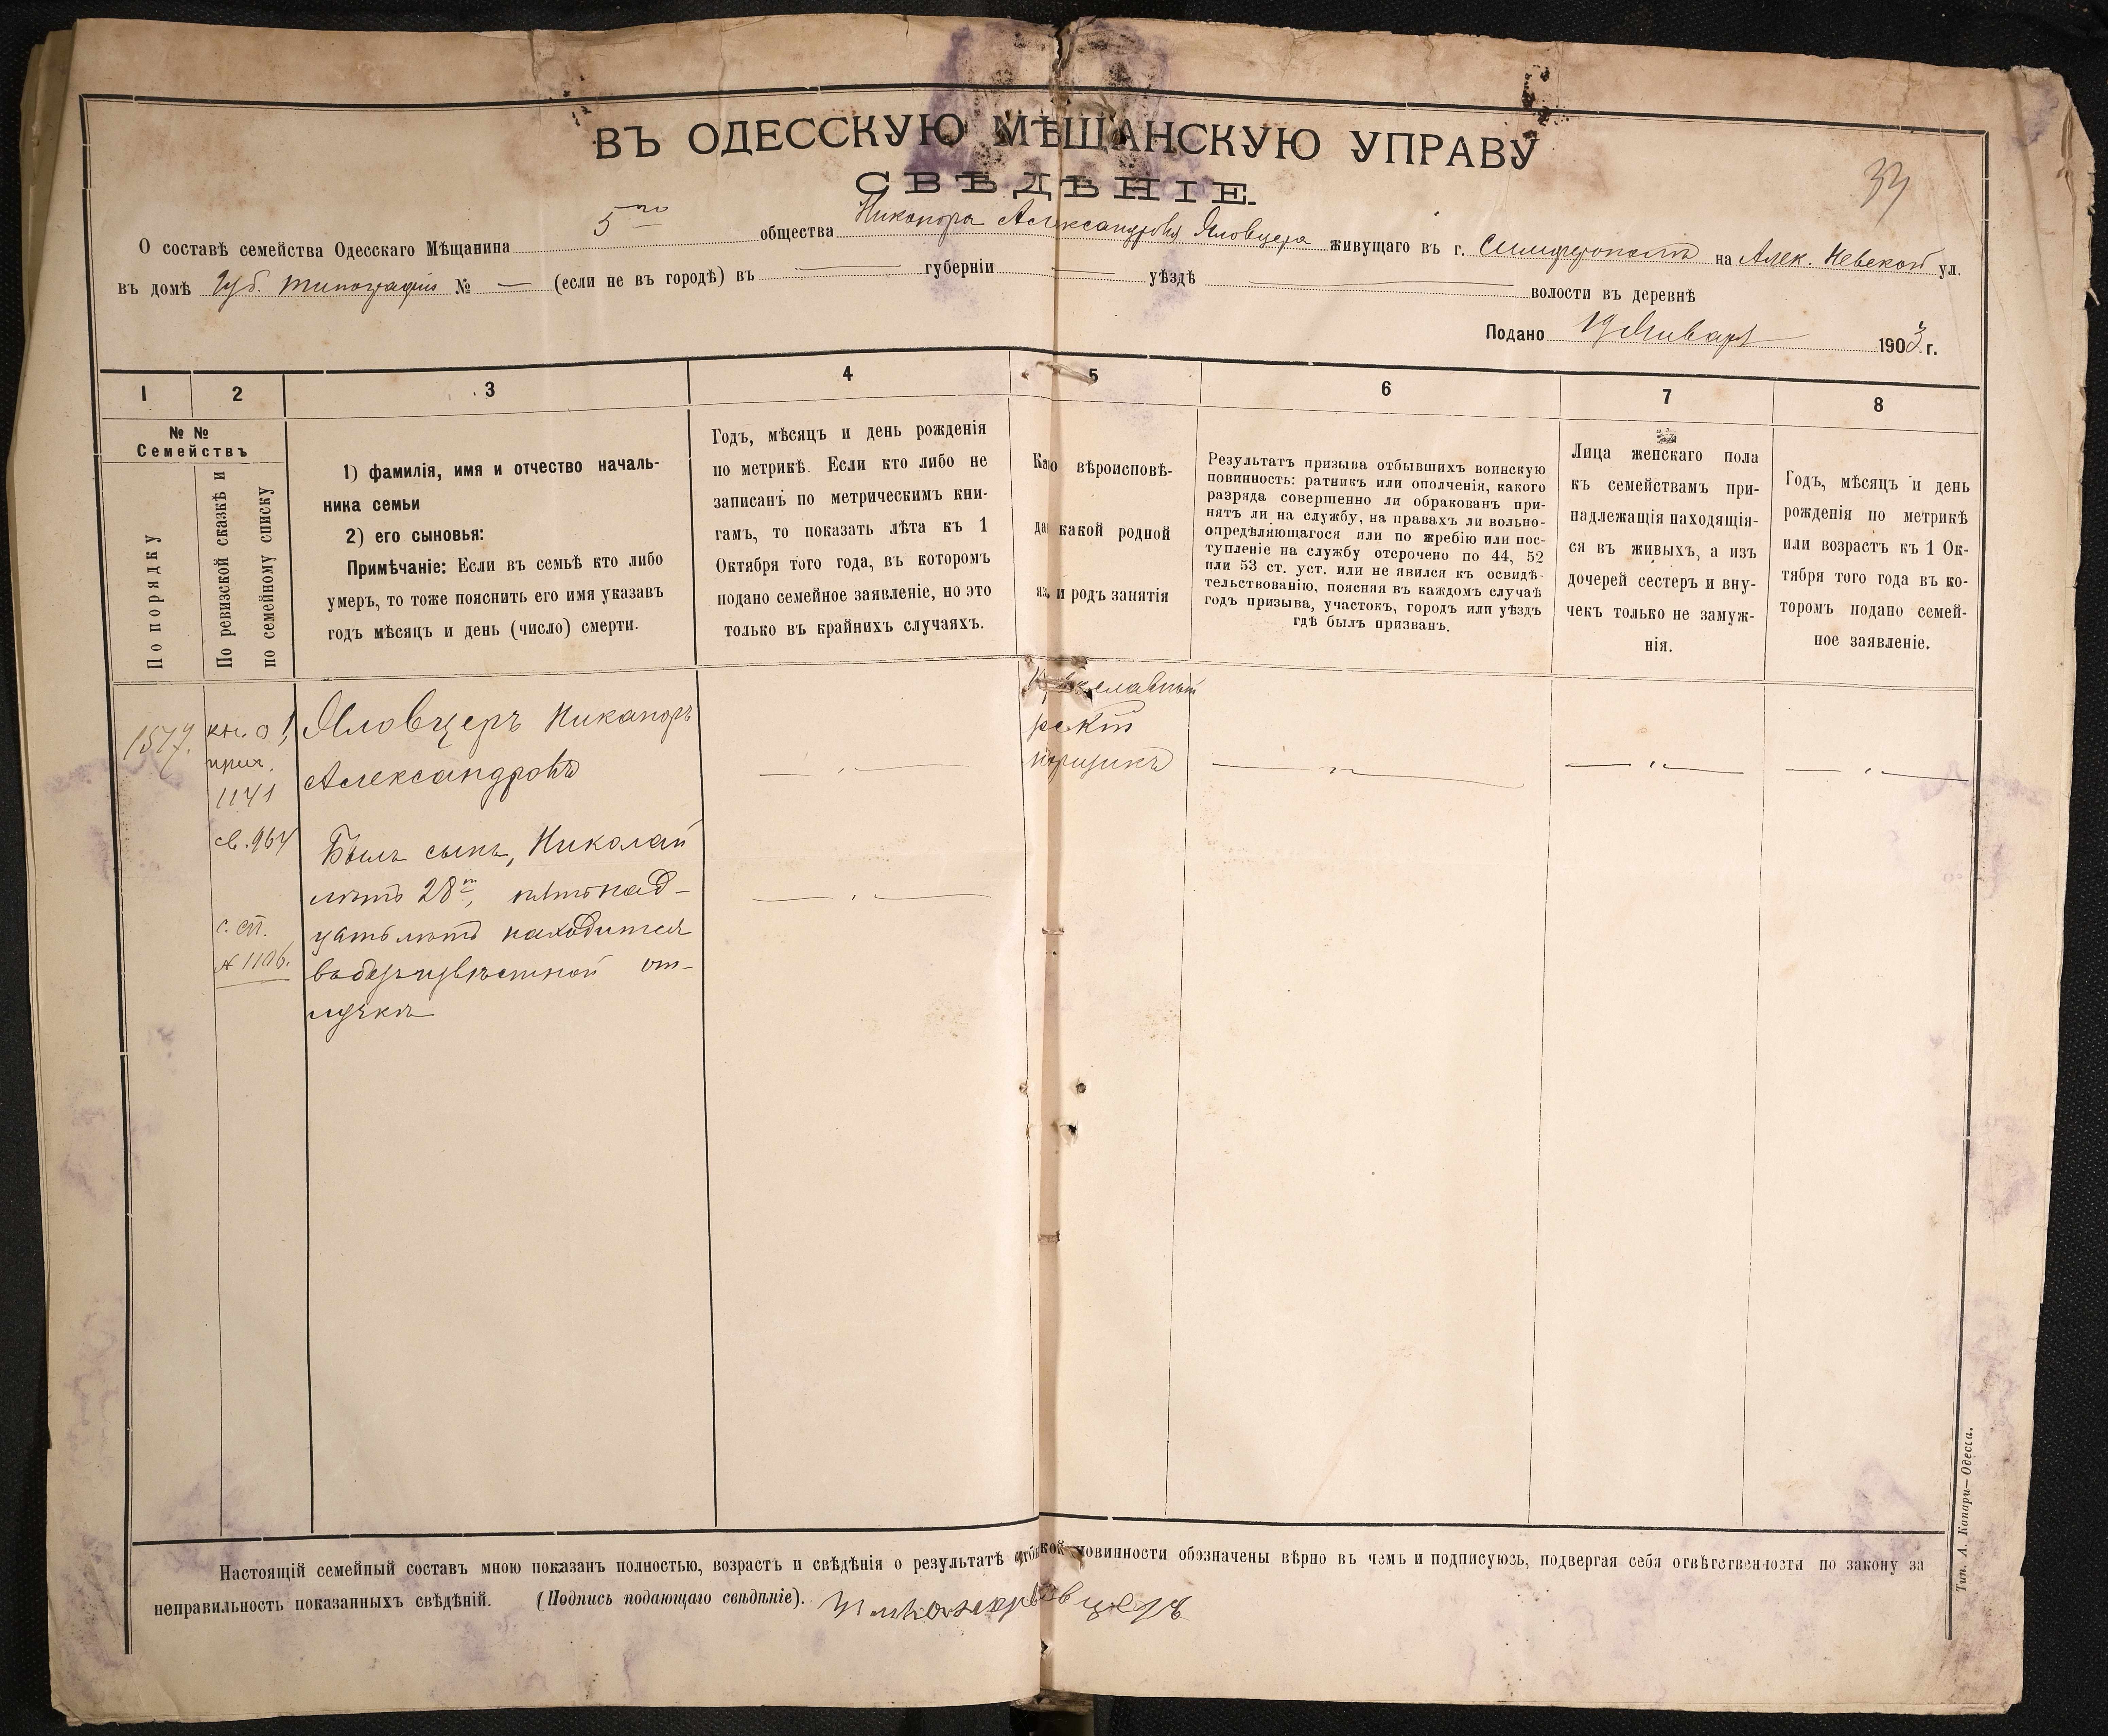 ВЪ ОДЕССКУЮ МѢЩАНСКУЮ УПРАВУ
СВѢДѢНІЕ.
О составѣ семейства Одесскаго Мѣщанина 5го общества Никанора Александрова Яловцера живущаго въ г. Симферополѣ на Алек. Невской ул.
въ домѣ Губ. типографіи № — (если не въ городѣ) въ — губерніи — уѣздѣ — волости въ деревнѣ
Подано 19 Января 1903 г.
1 2 3 4 5 6 7 8
№ №
Семействъ
По порядку
По ревизской сказкѣ и
по семейному списку
1) фамилія, имя и отчество началь-
ника семьи
2) его сыновья:
Примѣчаніе: Если въ семьѣ кто либо
умеръ, то тоже пояснить его имя указавъ
годъ мѣсяцъ и день (число) смерти.
Годъ, мѣсяцъ и день рожденія
по метрикѣ. Если кто либо не
записанъ по метрическимъ кни-
гамъ, то показать лѣта къ 1
Октября того года, въ которомъ
подано семейное заявленіе, но это
только въ крайнихъ случаяхъ.
вѣроисповѣ-
какой родной
и родъ занятія
Результатъ призыва отбывшихъ воинскую
повинность: ратникъ или ополченія, какого
разряда совершенно ли обракованъ при-
нятъ ли на службу, на правахъ ли вольно-
опредѣляющагося или по жребію или пос-
тупленіе на службу отсрочено по 44, 52
или 53 ст. уст. или не явился къ освидѣ-
тельствованію, поясняя въ каждомъ случаѣ
годъ призыва, участокъ, городъ или уѣздъ
гдѣ былъ призванъ.
Лица женскаго пола
къ семействамъ при-
надлежащія находящія-
ся въ живыхъ, а изъ
дочерей сестеръ и вну-
чекъ только не замуж-
нія.
Годъ, мѣсяцъ и день
рожденія по метрикѣ
или возрастъ къ 1 Ок-
тября того года въ ко-
торомъ подано семей-
ное заявленіе.
1577.
прич.
1141
св. 964
с. сп.
№ 1106.
Яловцеръ Никаноръ
Александровъ
Былъ сынъ, Николай
лѣтъ 28т, пятнад-
цать лѣтъ находится
въ безъизвѣстной от-
лучкѣ
Настоящій семейный составъ мною показанъ полностью, возрастъ и свѣдѣнія о результатѣ повинности обозначены вѣрно въ чемъ и подписуюсь, подвергая себя отвѣтственности по закону за
неправильность показанныхъ свѣдѣній. (Подпись подающаго свѣдѣніе).
Тип. А. Капари—Одесса.